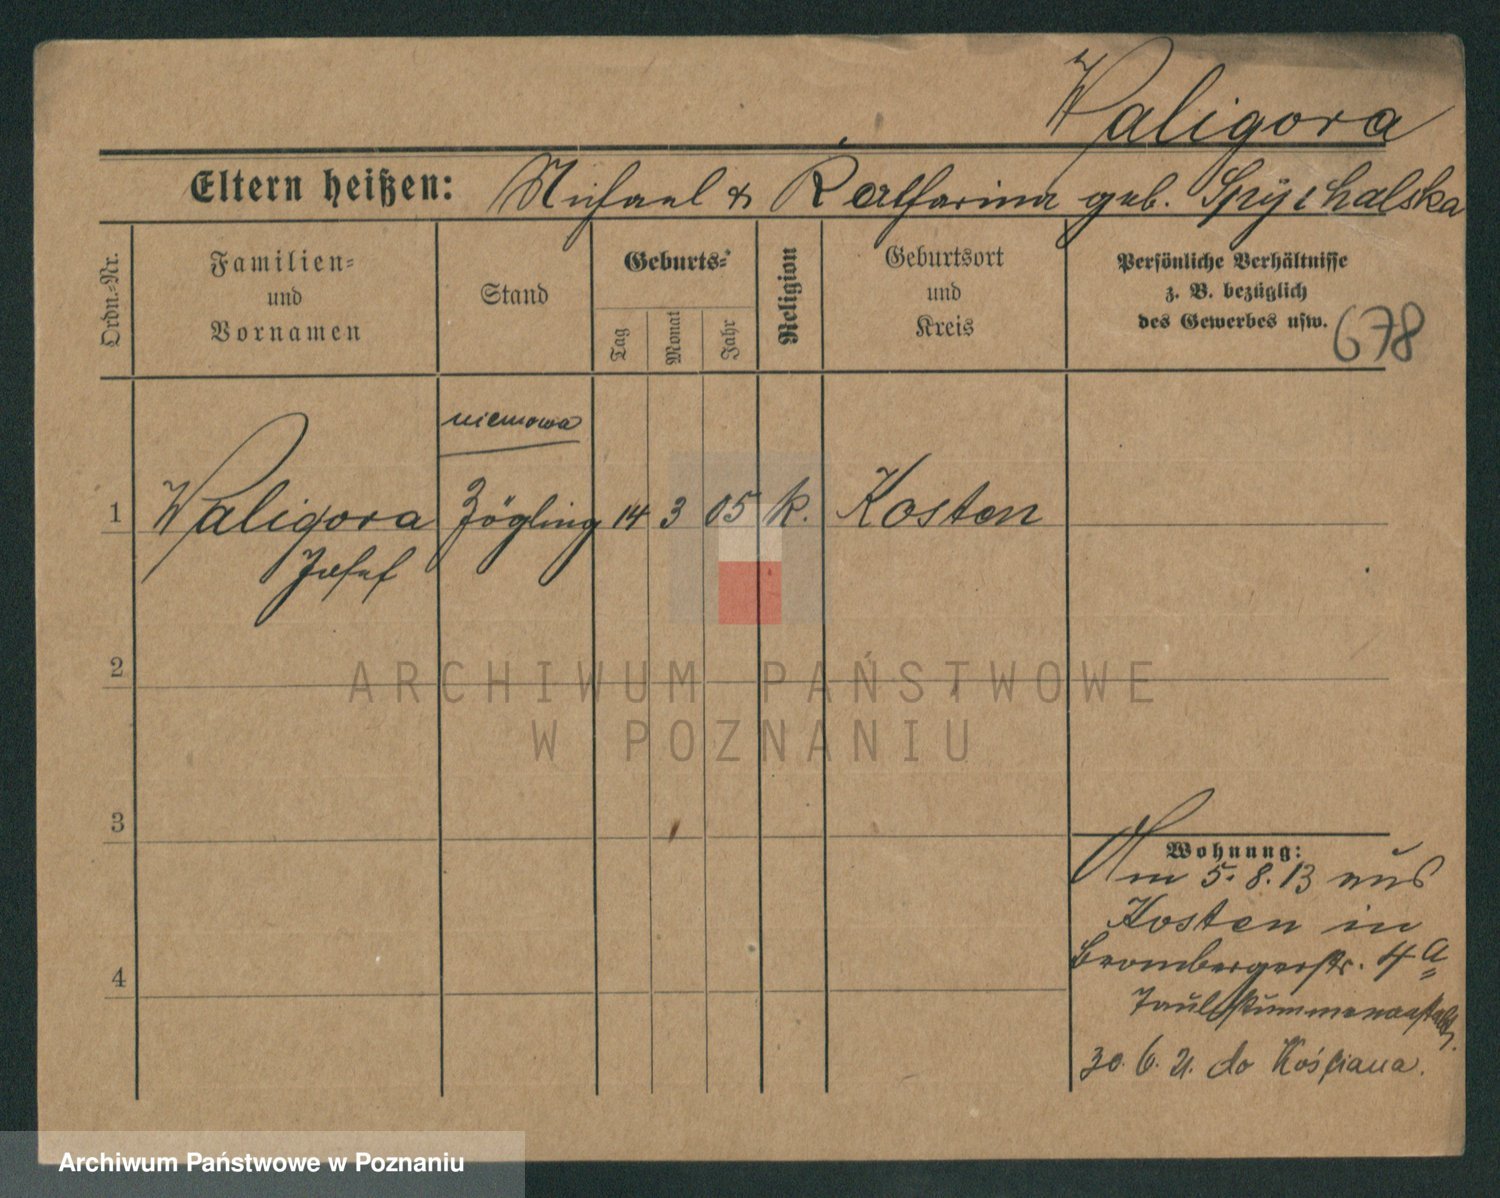 Waligora
Eltern heißen: Michael & Katharina geb. Spychalska
Ordn.-Nr.
Familien-
und
Vornamen
Stand
Geburts-
Tag
Monat
Jahr
Religion
Geburtsort
und
Kreis
Persönliche Verhältnisse
z. B. bezüglich
des Gewerbes usw.
678
niemowa
1 Waligora Zögling 14 3 05 k. Kosten
Josef
2
ARCHIWUM PAŃSTWOWE
W POZNANIU
3
Wohnung:
Am 5.8.13 aus
Kosten in
Brombergerstr. 4a
Taubstummenanstalt
4
30.6.21. do Kościana.
Archiwum Państwowe w Poznaniu